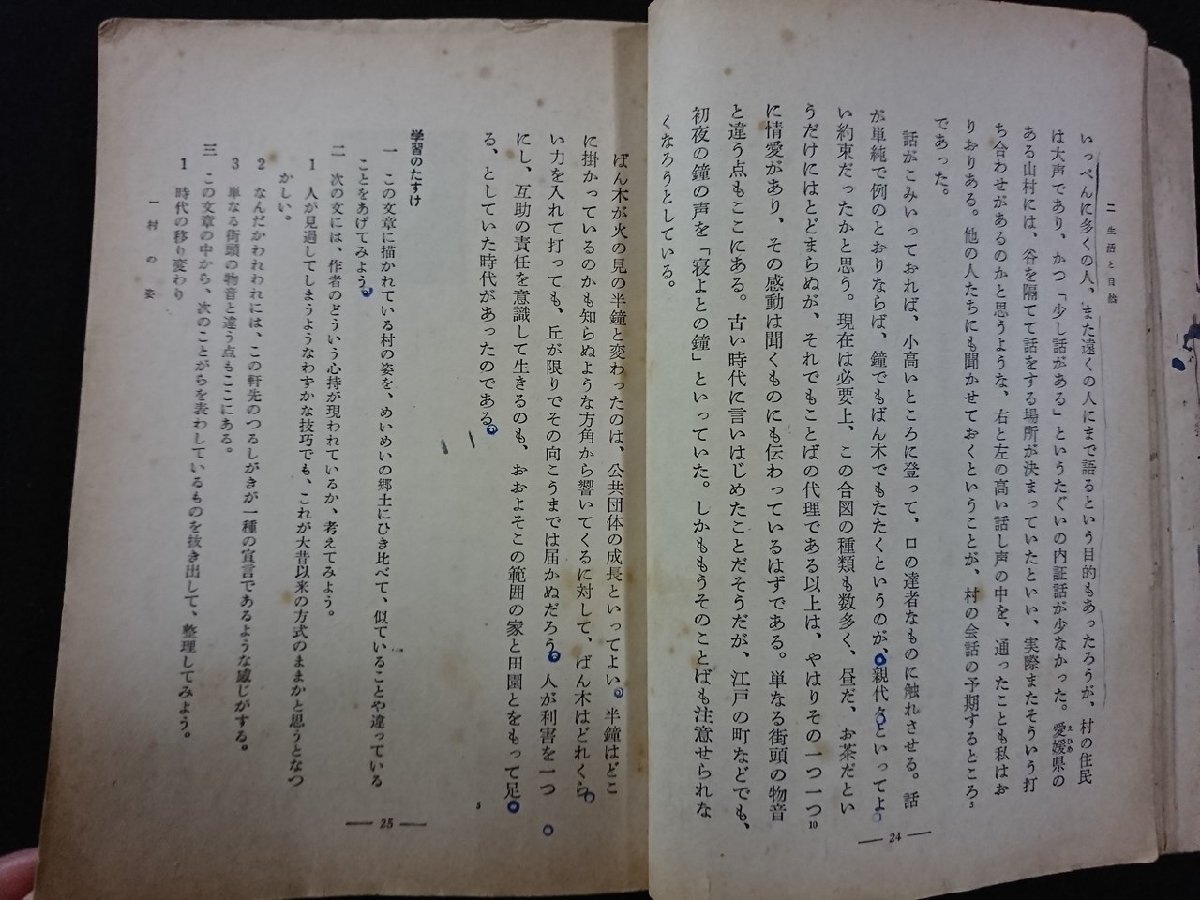 二 生活と自然
いっぺんに多くの人、また遠くの人にまで語るという目的もあったろうが、村の住民
は大声であり、かつ「少し話がある」というたぐいの内証話が少なかった。愛媛県の
えひめ
ある山村には、谷を隔てて話をする場所が決まっていたといい、実際またそういう打
ち合わせがあるのかと思うような、右と左の高い話し声の中を、通ったことも私はお
りおりある。他の人たちにも聞かせておくということが、村の会話の予期するところ
5
であった。
話がこみいっておれば、小高いところに登って、口の達者なものに触れさせる。話
が単純で例のとおりならば、鐘でもばん木でもたたくというのが、親代々といってよ
い約束だったかと思う。現在は必要上、この合図の種類も数多く、昼だ、お茶だとい
うだけにはとどまらぬが、それでもことばの代理である以上は、やはりその一つ一つ
10
に情愛があり、その感動は聞くものにも伝わっているはずである。単なる街頭の物音
と違う点もここにある。古い時代に言いはじめたことだそうだが、江戸の町などでも、
初夜の鐘の声を「寝よとの鐘」といっていた。しかももうそのことばも注意せられな
くなろうとしている。
— 24 —
ばん木が火の見の半鐘と変わったのは、公共団体の成長といってよい。半鐘はどこ
に掛かっているのかも知らぬような方角から響いてくるに対して、ばん木はどれくら
い力を入れて打っても、丘が限りでその向こうまでは届かぬだろう。人が利害を一つ
にし、互助の責任を意識して生きるのも、おおよそこの範囲の家と田園とをもって足
る、としていた時代があったのである。
5
学習のたすけ
一 この文章に描かれている村の姿を、めいめいの郷土にひき比べて、似ていることや違っている
ことをあげてみよう。
二 次の文には、作者のどういう心持が現われているか、考えてみよう。
1 人が見過してしまうようなわずかな技巧でも、これが大昔以来の方式のままかと思うとなつ
かしい。
2 なんだかわれわれには、この軒先のつるしがきが一種の宣言であるような感じがする。
3 単なる街頭の物音と違う点もここにある。
三 この文章の中から、次のことがらを表わしているものを抜き出して、整理してみよう。
1 時代の移り変わり
一 村の姿
— 25 —